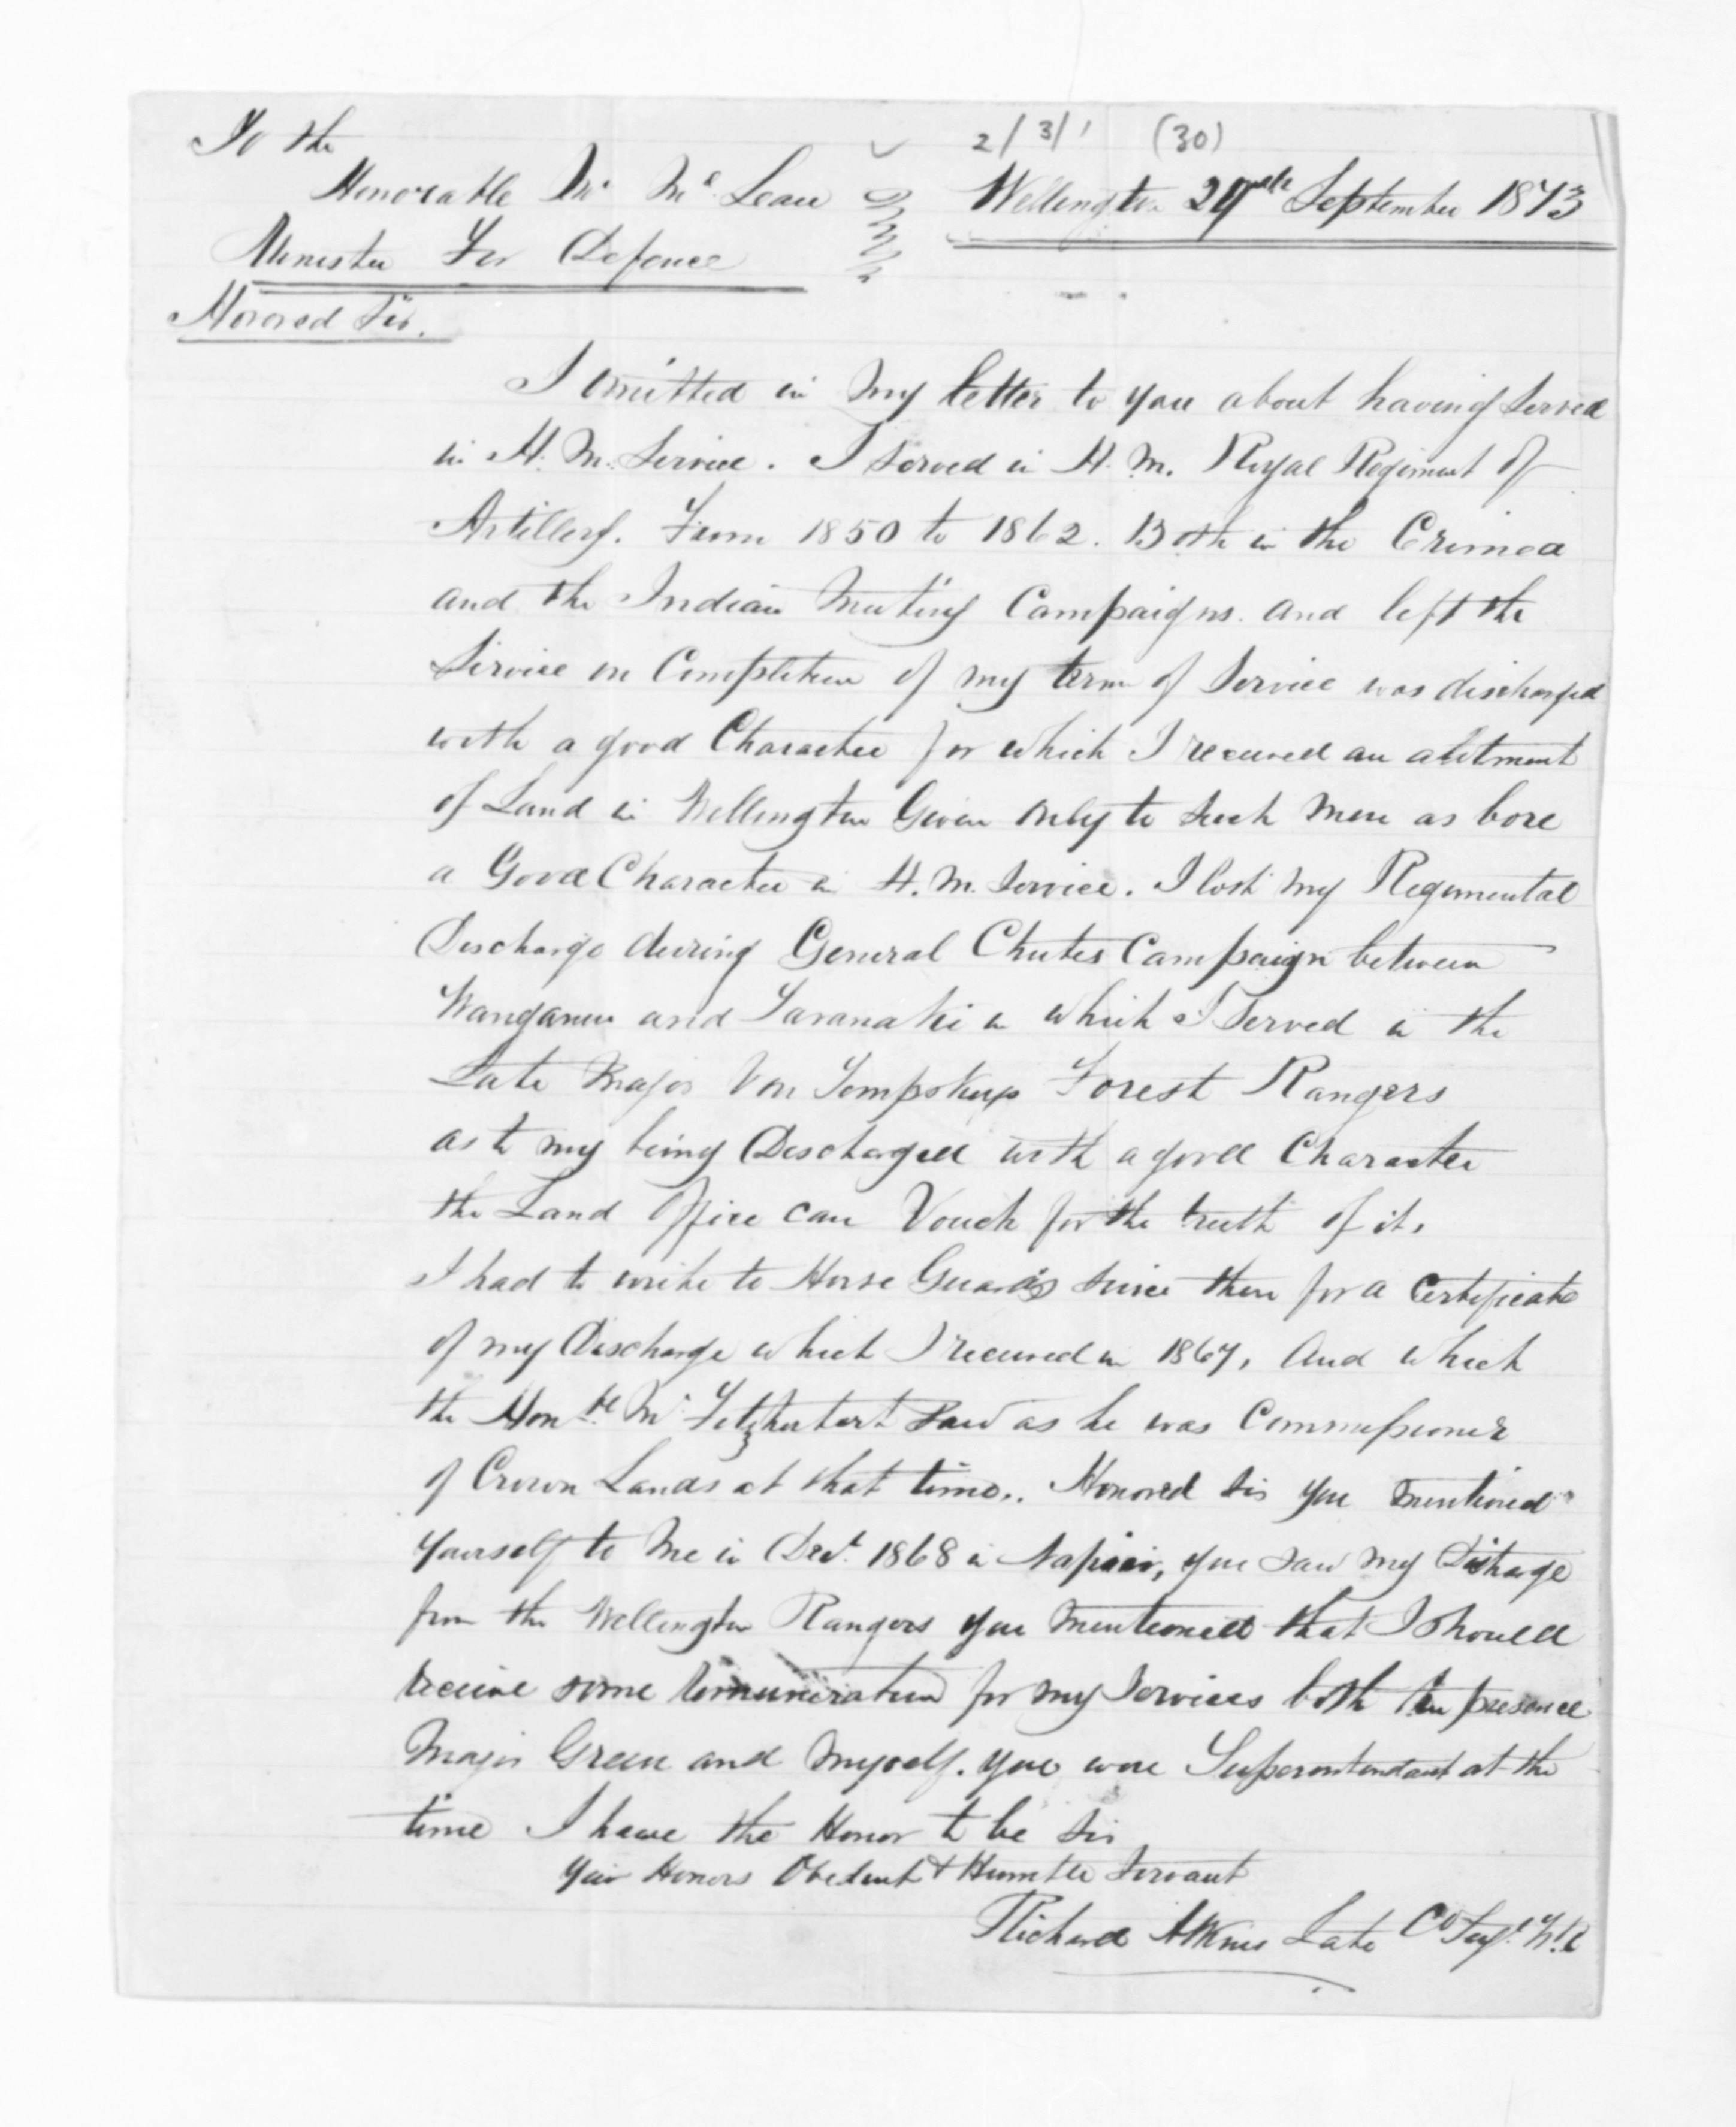 2/3/1 (30)
To the
Honorable Mr McLean
Minister For Defence
Wellington September 1873
Honored Sir.
I omitted in my letter to you about having Served
in H. M. Service. I Served in H. M. Royal Regiment of
Artillery. From 1850 to 1862. Both in the Crimea
and the Indian Mutiny Campaigns. and left the
Service on Completion of my term of Service was discharged
with a good Character for which I received an alotment
of Land in Wellington Given only to Such Men as bore
a Good Character in H. M. Service. I lost my Regimental
Discharge during General Chutes Campaign between
Wanganui and Taranaki in which I Served in the
Late Major Von Tempskys Forest Rangers
as to my being Discharged with a good Character
the Land Office can Vouch for the truth of it.
I had to write to Horse Guards Since then for a Certificate
of my Discharge which I received in 1867, And which
the Honble Mr Fitzherbert Saw as he was Commissioner
of Crown Lands at that time.. Honored Sir you mentioned
yourself to Me in 1868 in Napier, you saw my Discharge
from the Wellington Rangers you mentioned that I Should
receive some remuneration for my Services both in presence
Major Green and Myself. you were Superentendant at the
time I have the Honor to be Sir
Your Honors Obedient & Humble Servant
Richard Atkins Late